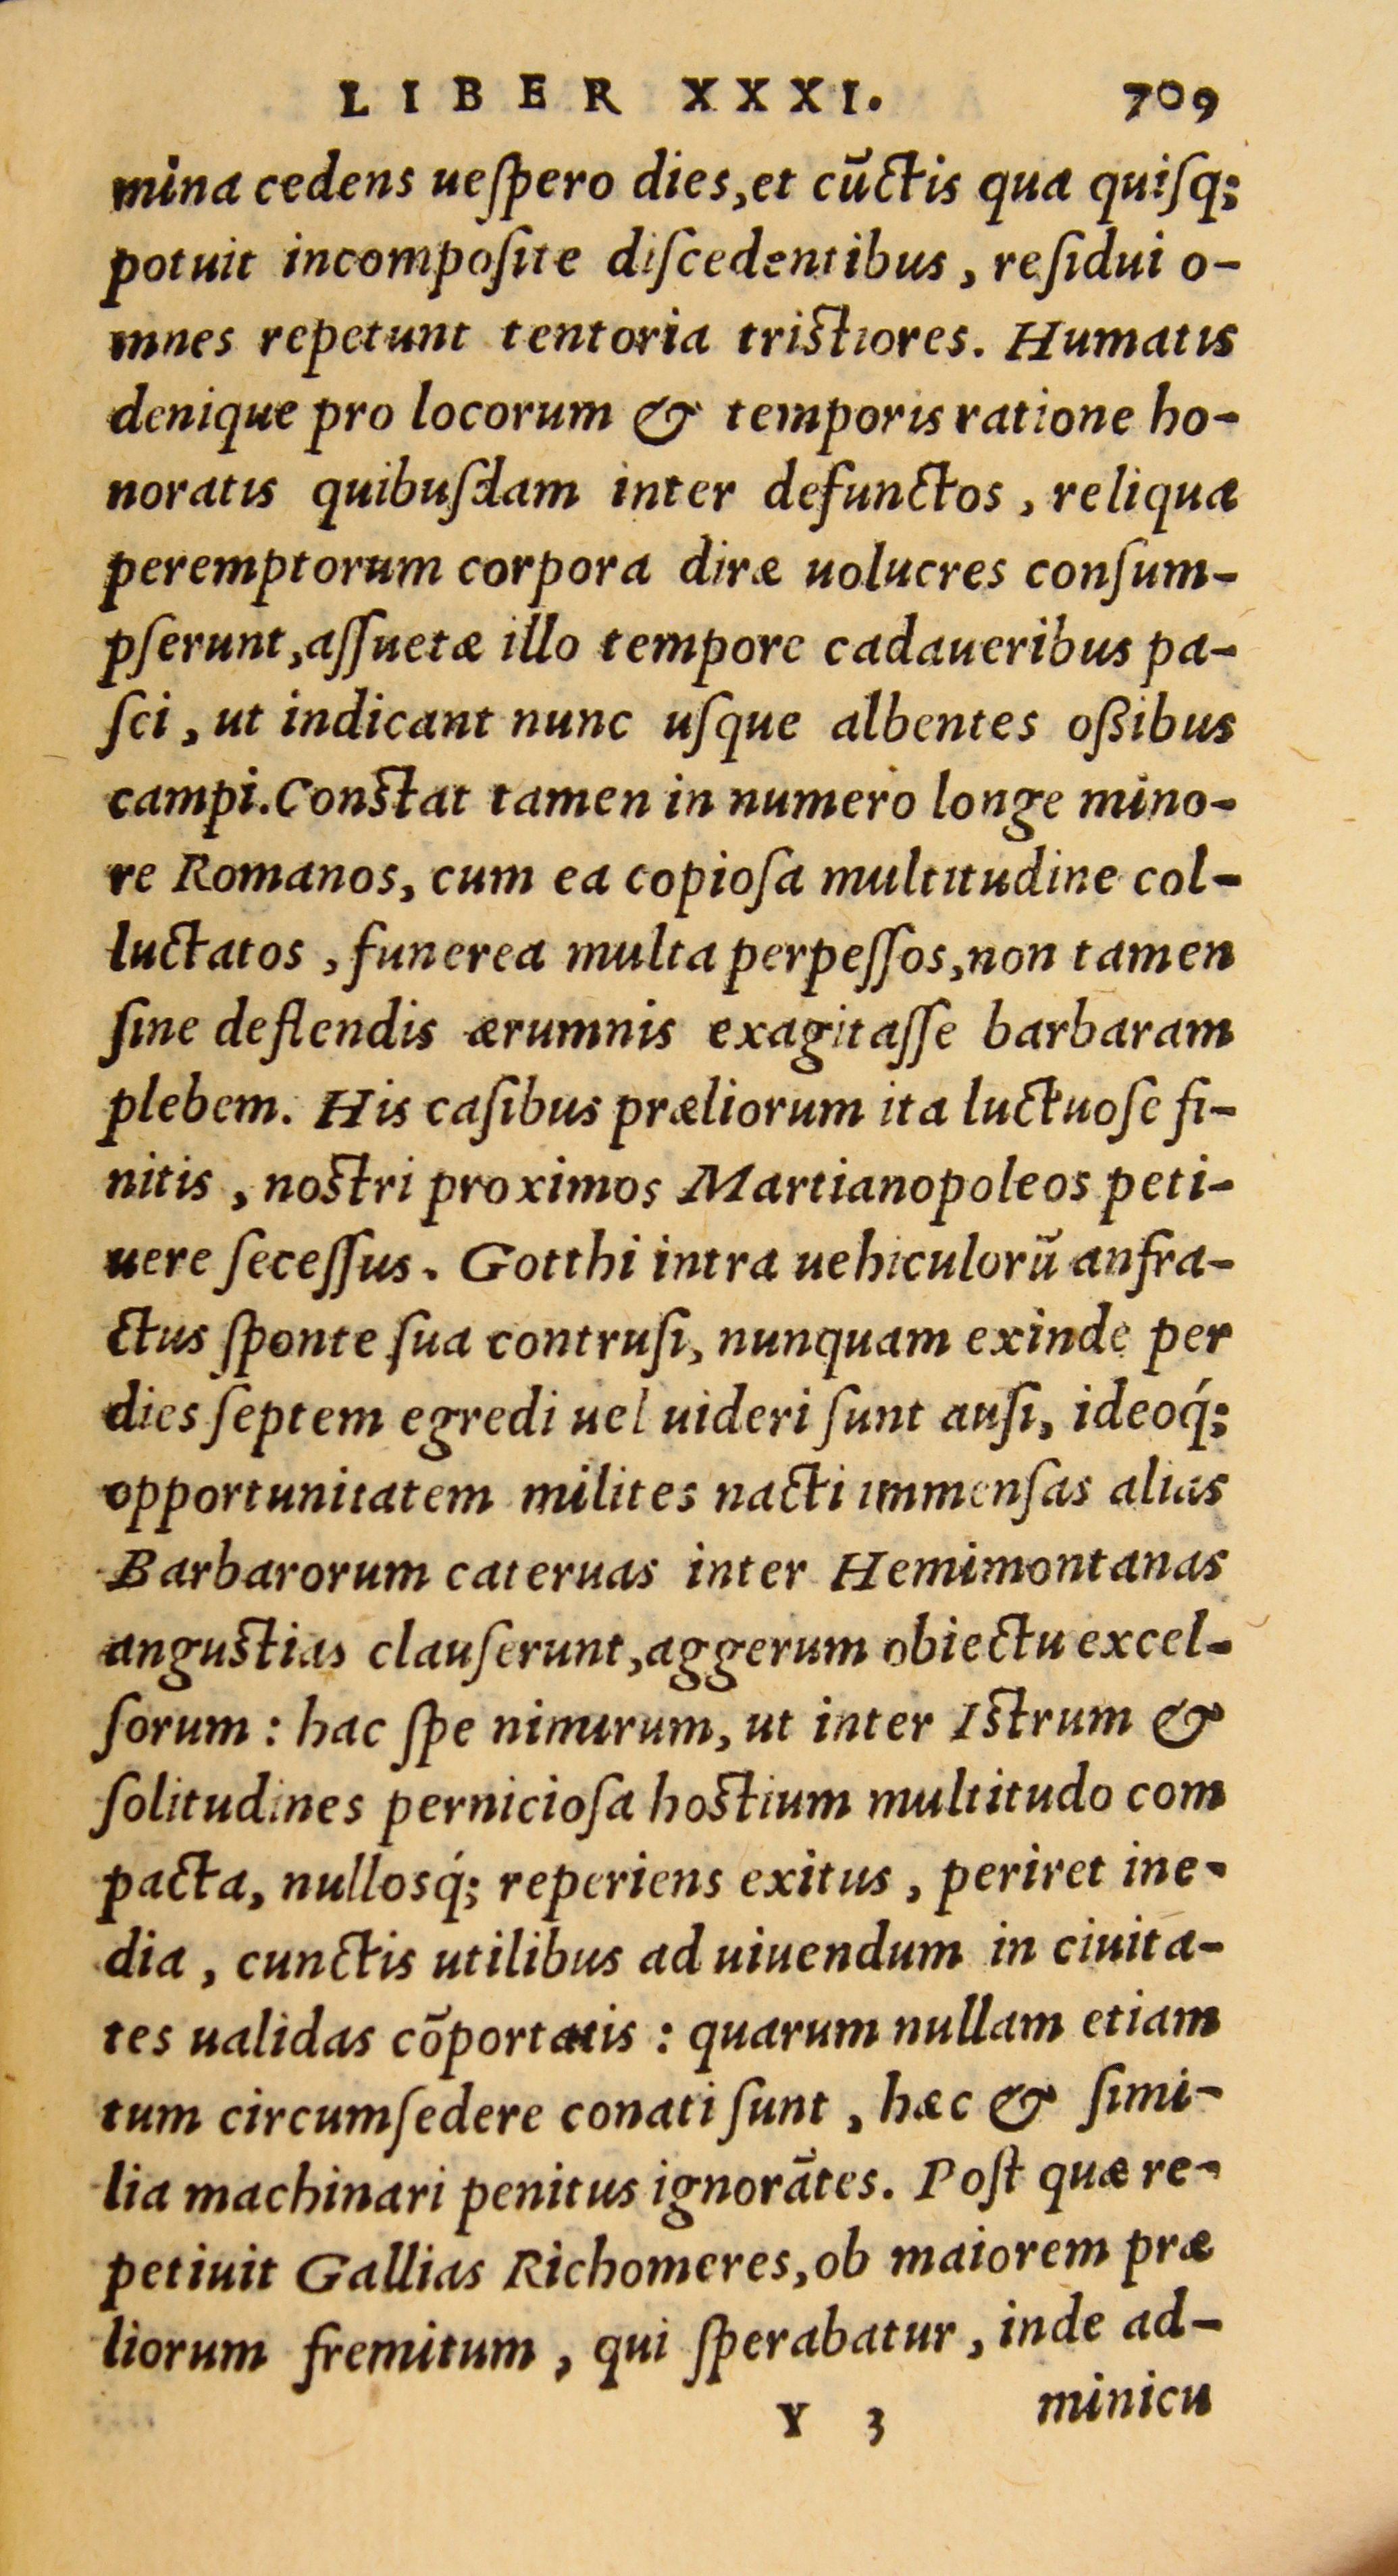 LIBER XXXI. 709
mina cedens ueſpero dies,et cūctis qua quiſq;
potuit incompoſite diſcedentibus, reſidui o-
mnes repetunt tentoria triſtiores. Humatis
denique pro locorum & temporis ratione ho-
noratis quibuſdam inter defunctos, reliqua
peremptorum corpora diræ uolucres conſum-
pſerunt,aſſuetæ illo tempore cadaueribus pa-
ſci, ut indicant nunc uſque albentes oßibus
campi.Conſtat tamen in numero longe mino-
re Romanos, cum ea copioſa multitudine col-
luctatos, funerea multa perpeſſos,non tamen
ſine deflendis ærumnis exagitaſſe barbaram
plebem. His caſibus præliorum ita luctuoſe fi-
nitis, noſtri proximos Martianopoleos peti-
uere ſeceſſus. Gotthi intra uehiculorū anfra-
ctus ſponte ſua contruſi, nunquam exinde per
dies ſeptem egredi uel uideri ſunt auſi, ideoq́;
opportunitatem milites nacti immenſas alias
Barbarorum cateruas inter Hemimontanas
anguſtias clauſerunt,aggerum obiectu excel-
ſorum: hac ſpe nimirum, ut inter Iſtrum &
ſolitudines pernicioſa hoſtium multitudo com
pacta, nullosq́; reperiens exitus, periret ine-
dia, cunctis utilibus ad uiuendum in ciuita-
tes ualidas cōportatis: quarum nullam etiam
tum circumſedere conati ſunt, hæc & ſimi-
lia machinari penitus ignorātes. Poſt quæ re-
petiuit Gallias Richomeres,ob maiorem præ
liorum fremitum, qui ſperabatur, inde ad-
Y 3 minicu